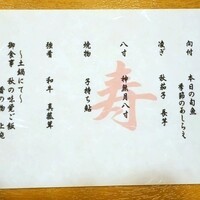 向付 本日の旬魚
季節のあしらえ
凌ぎ 秋茄子 長芋
八寸 神無月八寸
寿
焼物 子持ち鮎
強肴 和牛 真菰茸
～土鍋にて～
御食事 秋の味覚ご飯
香の物 上庵